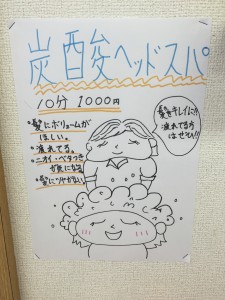 炭酸ヘッドスパ
10分 1000円
・髪にボリュームが
ほしい。
・疲れてる。
・ニオイ・べたつき
が気になる
・髪にツヤがない
髪をキレイに!!
疲れてる方
はぜひ!!